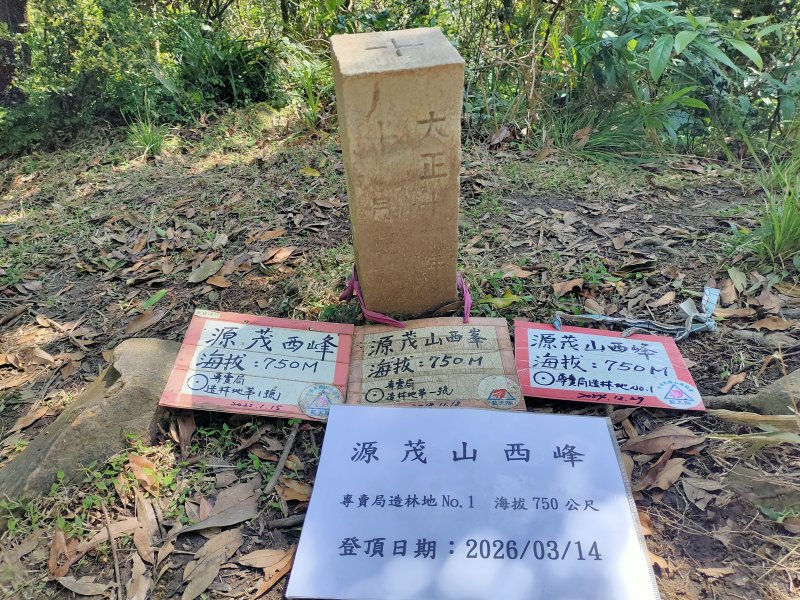 大正十一年
十一月
源茂西峰
海拔:750M
專賣局
造林地第1號
2022.1.15
源茂山西峯
海拔:750M
專賣局
造林地第一號
源茂山西峰
海拔:750M
專賣局造林地No.1
2024.12.29
源茂山西峰
專賣局造林地 No.1 海拔 750 公尺
登頂日期:2026/03/14